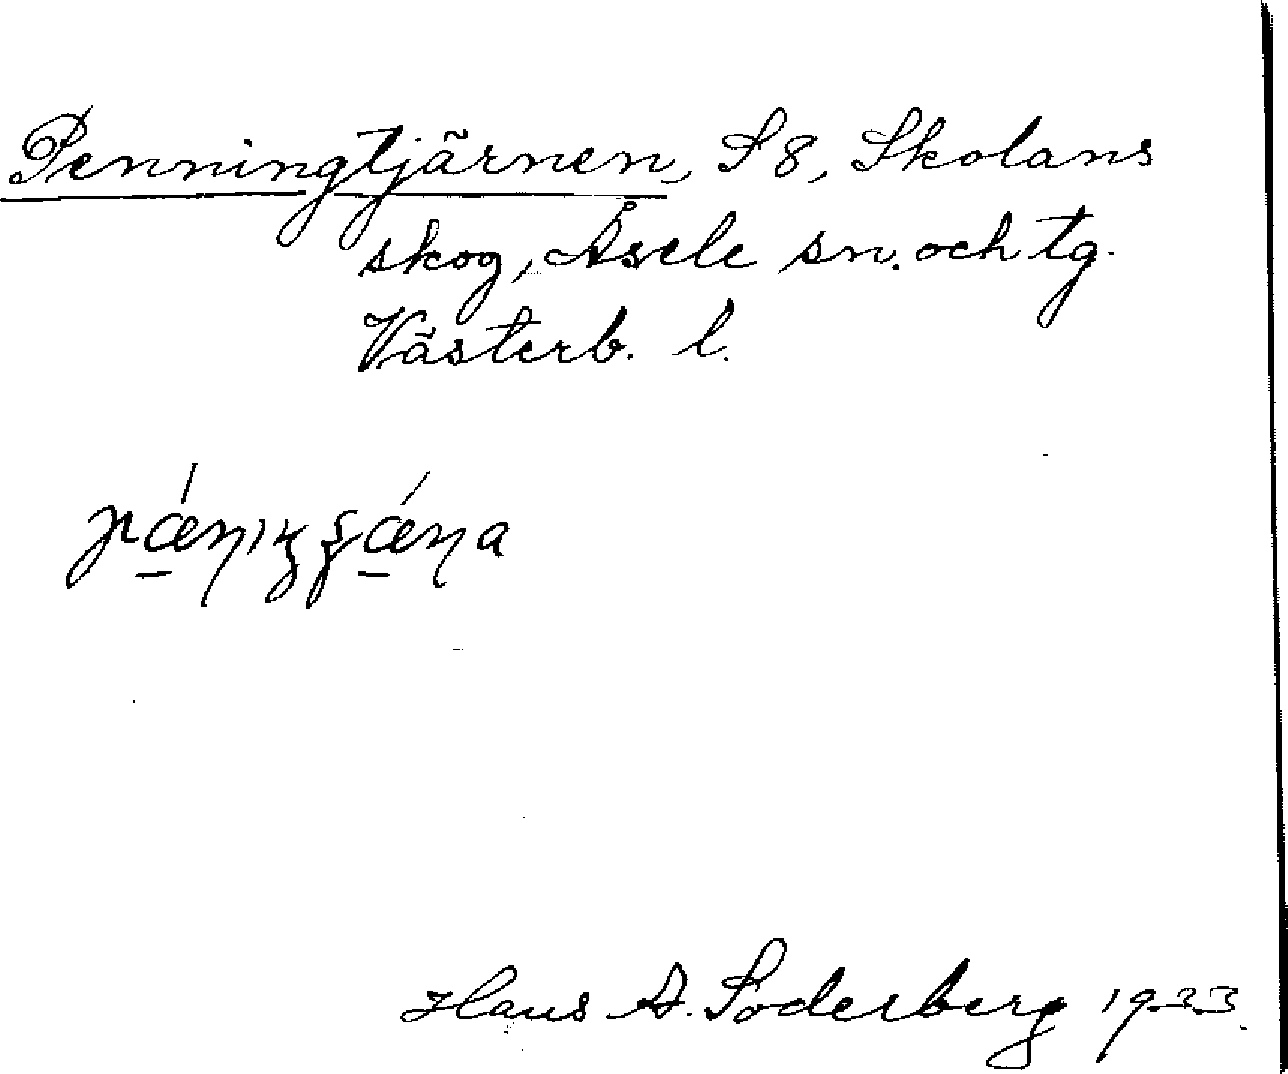 Penningtjärnen, S 8, Skolans
skog, Åsele sn. och tg.
Västerb. l.
Hans A. Söderberg 1933.